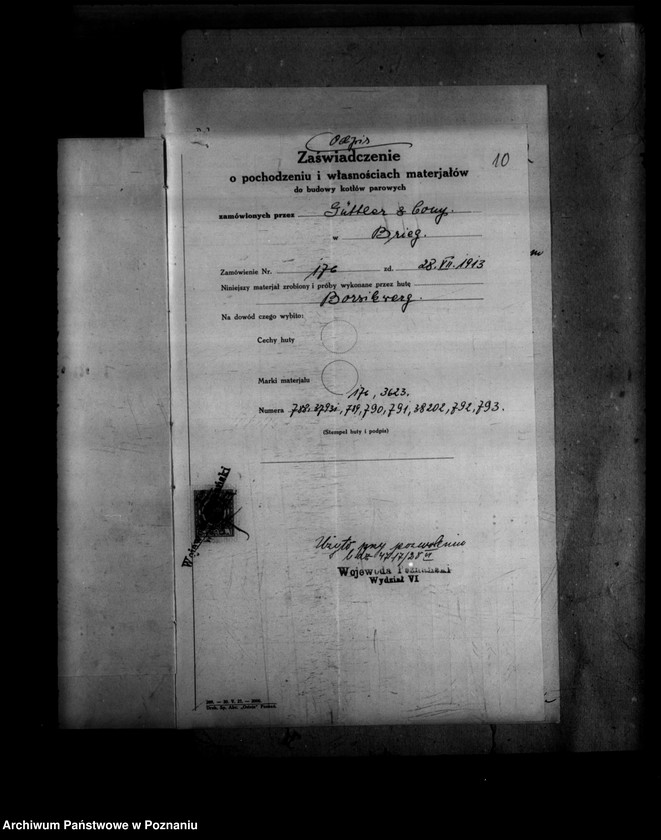 Odpis
10
Zaświadczenie
o pochodzeniu i własnościach materjałów
do budowy kotłów parowych
zamówionych przez Güttler & Comp.
w Brieg.
Zamówienie Nr. 176 zd. 28.VII.1913
Niniejszy materjał zrobiony i próby wykonane przez hutę
Borsikwerg.
Na dowód czego wybito:
Cechy huty
Marki materjału
176, 3623.
Numera 788, 789, 790, 791, 38202, 792, 793.
(Stempel huty i podpis)
Użyto przy pozwoleniu
4717/28 VI
Wojewoda Poznański
Wydział VI
Archiwum Państwowe w Poznaniu